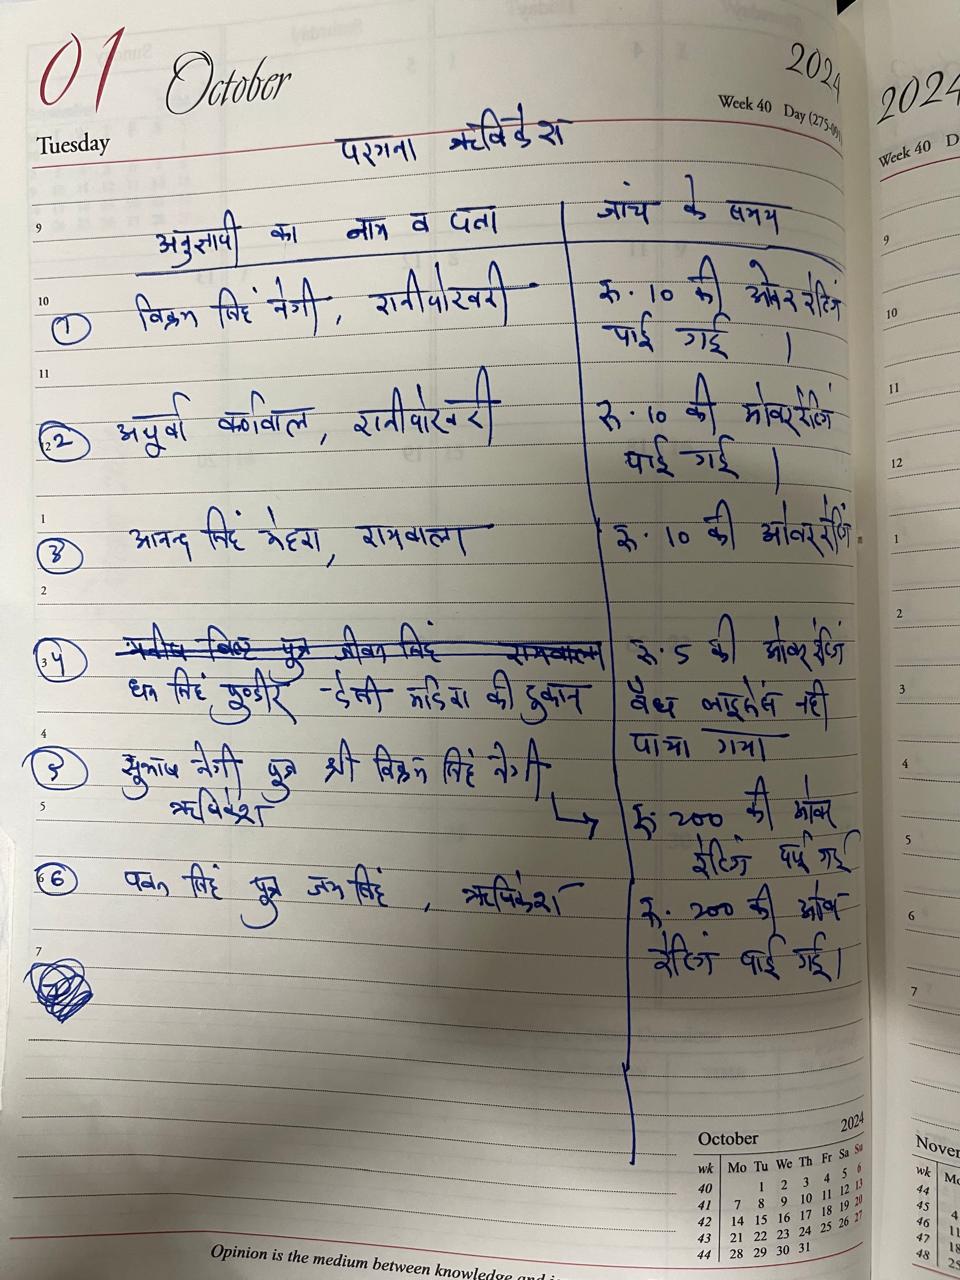 01 October 2024
Week 40 Day (275-091)
Tuesday
परगना ऋषिकेश
अनुज्ञापी का नाम व पता जांच के समय
① विक्रम सिंह नेगी, रानीपोखरी रू. 10 की ओवर रेटिंग
पाई गई ।
② अपूर्वा रानीपोखरी रू. 10 की ओवर रेटिंग
पाई गई ।
③ आनन्द सिंह मेहरा, रामवाला रू. 10 की ओवर रेटिंग
④ पुत्र जीवन सिंह रायवाला रू. 5 की ओवर रेटिंग
धन सिंह पुण्डीर - देशी मदिरा की दुकान वैध लाइसेंस नही
पाया गया
5 सुभाष नेगी पुत्र श्री विक्रम सिंह नेगी
ऋषिकेश → रू. 200 की ओवर
रेटिंग पाई गई
⑥ पवन सिंह पुत्र सिंह, ऋषिकेश रू. 200 की ओवर
रेटिंग पाई गई।
9
10
11
12
1
2
3
4
5
6
7
October 2024
wk Mo Tu We Th Fr Sa Su
40 1 2 3 4 5 6
41 7 8 9 10 11 12 13
42 14 15 16 17 18 19 20
43 21 22 23 24 25 26 27
44 28 29 30 31
Opinion is the medium between knowledge and
2024
Week 40 D
9
10
11
12
1
2
3
4
5
6
7
Novem
wk Mo
44
45 4
46 11
47 18
48 25